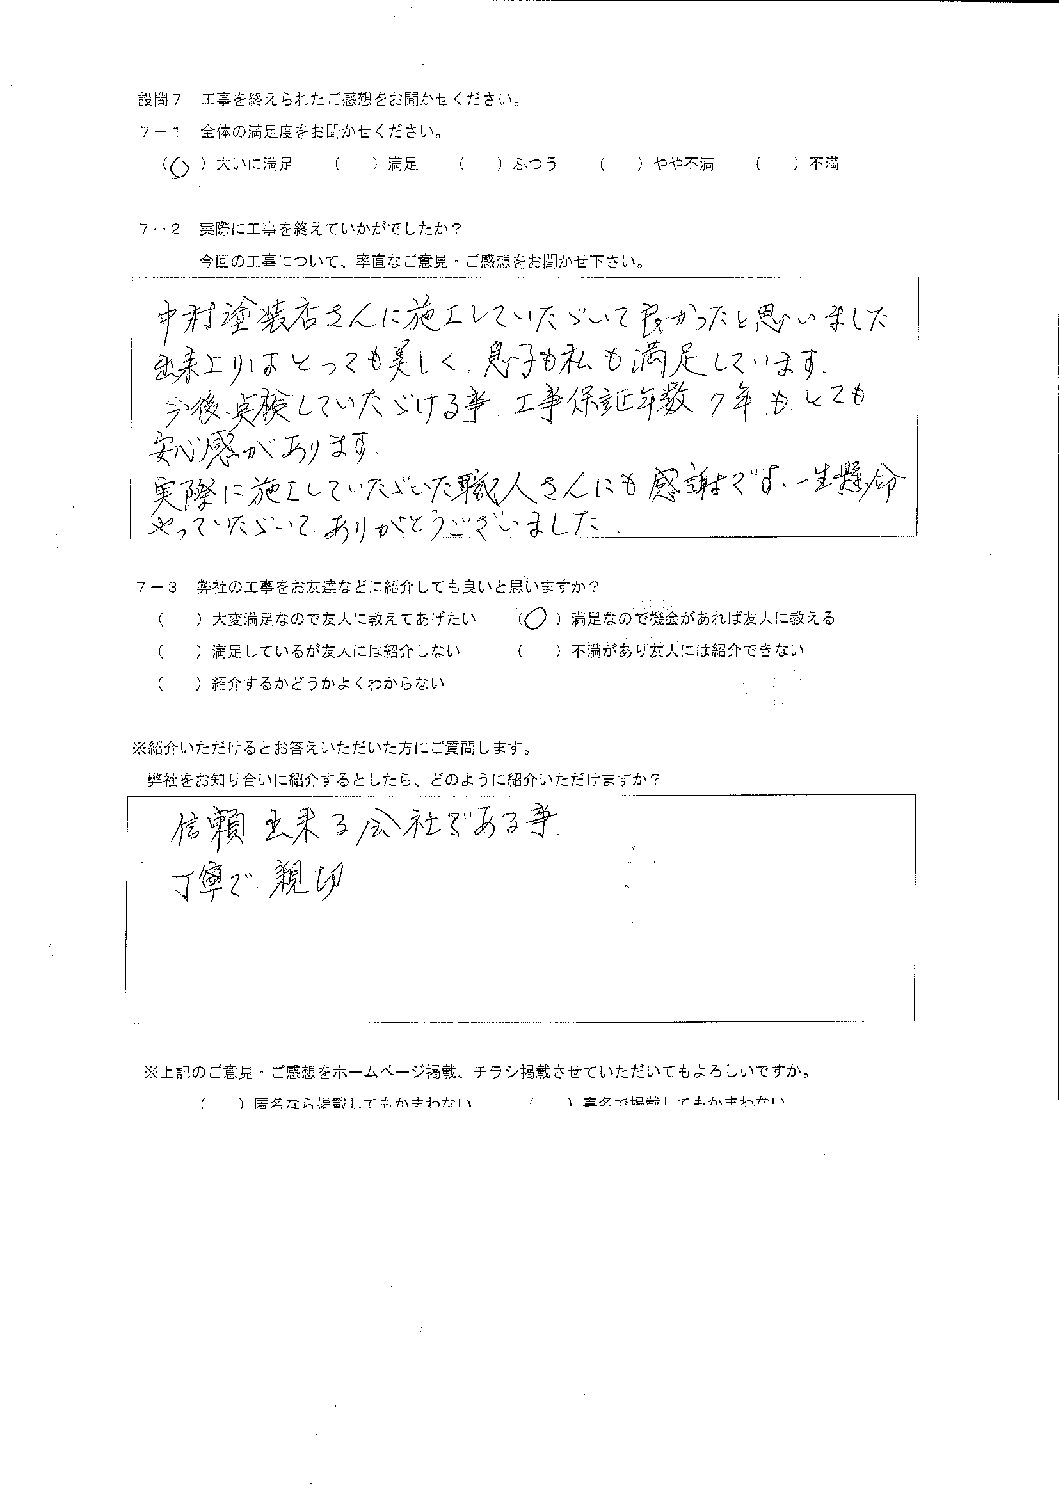 設問７　工事を終えられたご感想をお聞かせください。
７－１　全体の満足度をお聞かせください。
（○）大いに満足　（　）満足　（　）ふつう　（　）やや不満　（　）不満
７－２　実際に工事を終えていかがでしたか？
今回の工事について、率直なご意見・ご感想をお聞かせ下さい。
中村塗装店さんに施工していただいて良かったと思いました
出来上りはとっても美しく、息子も私も満足しています。
今後、点検していただける事、工事保証年数７年も、とても
安心感があります。
実際に施工していただいた職人さんにも感謝です、一生懸命
やっていただいて、ありがとうございました。
７－３　弊社の工事をお友達などに紹介しても良いと思いますか？
（　）大変満足なので友人に教えてあげたい　（○）満足なので機会があれば友人に教える
（　）満足しているが友人には紹介しない　（　）不満があり友人には紹介できない
（　）紹介するかどうかよくわからない
※紹介いただけるとお答えいただいた方にご質問します。
弊社をお知り合いに紹介するとしたら、どのように紹介いただけますか？
信頼出来る会社である事、
丁寧で、親切
※上記のご意見・ご感想をホームページ掲載、チラシ掲載させていただいてもよろしいですか。
（　）匿名なら掲載してもかまわない　（　）実名で掲載してもかまわない